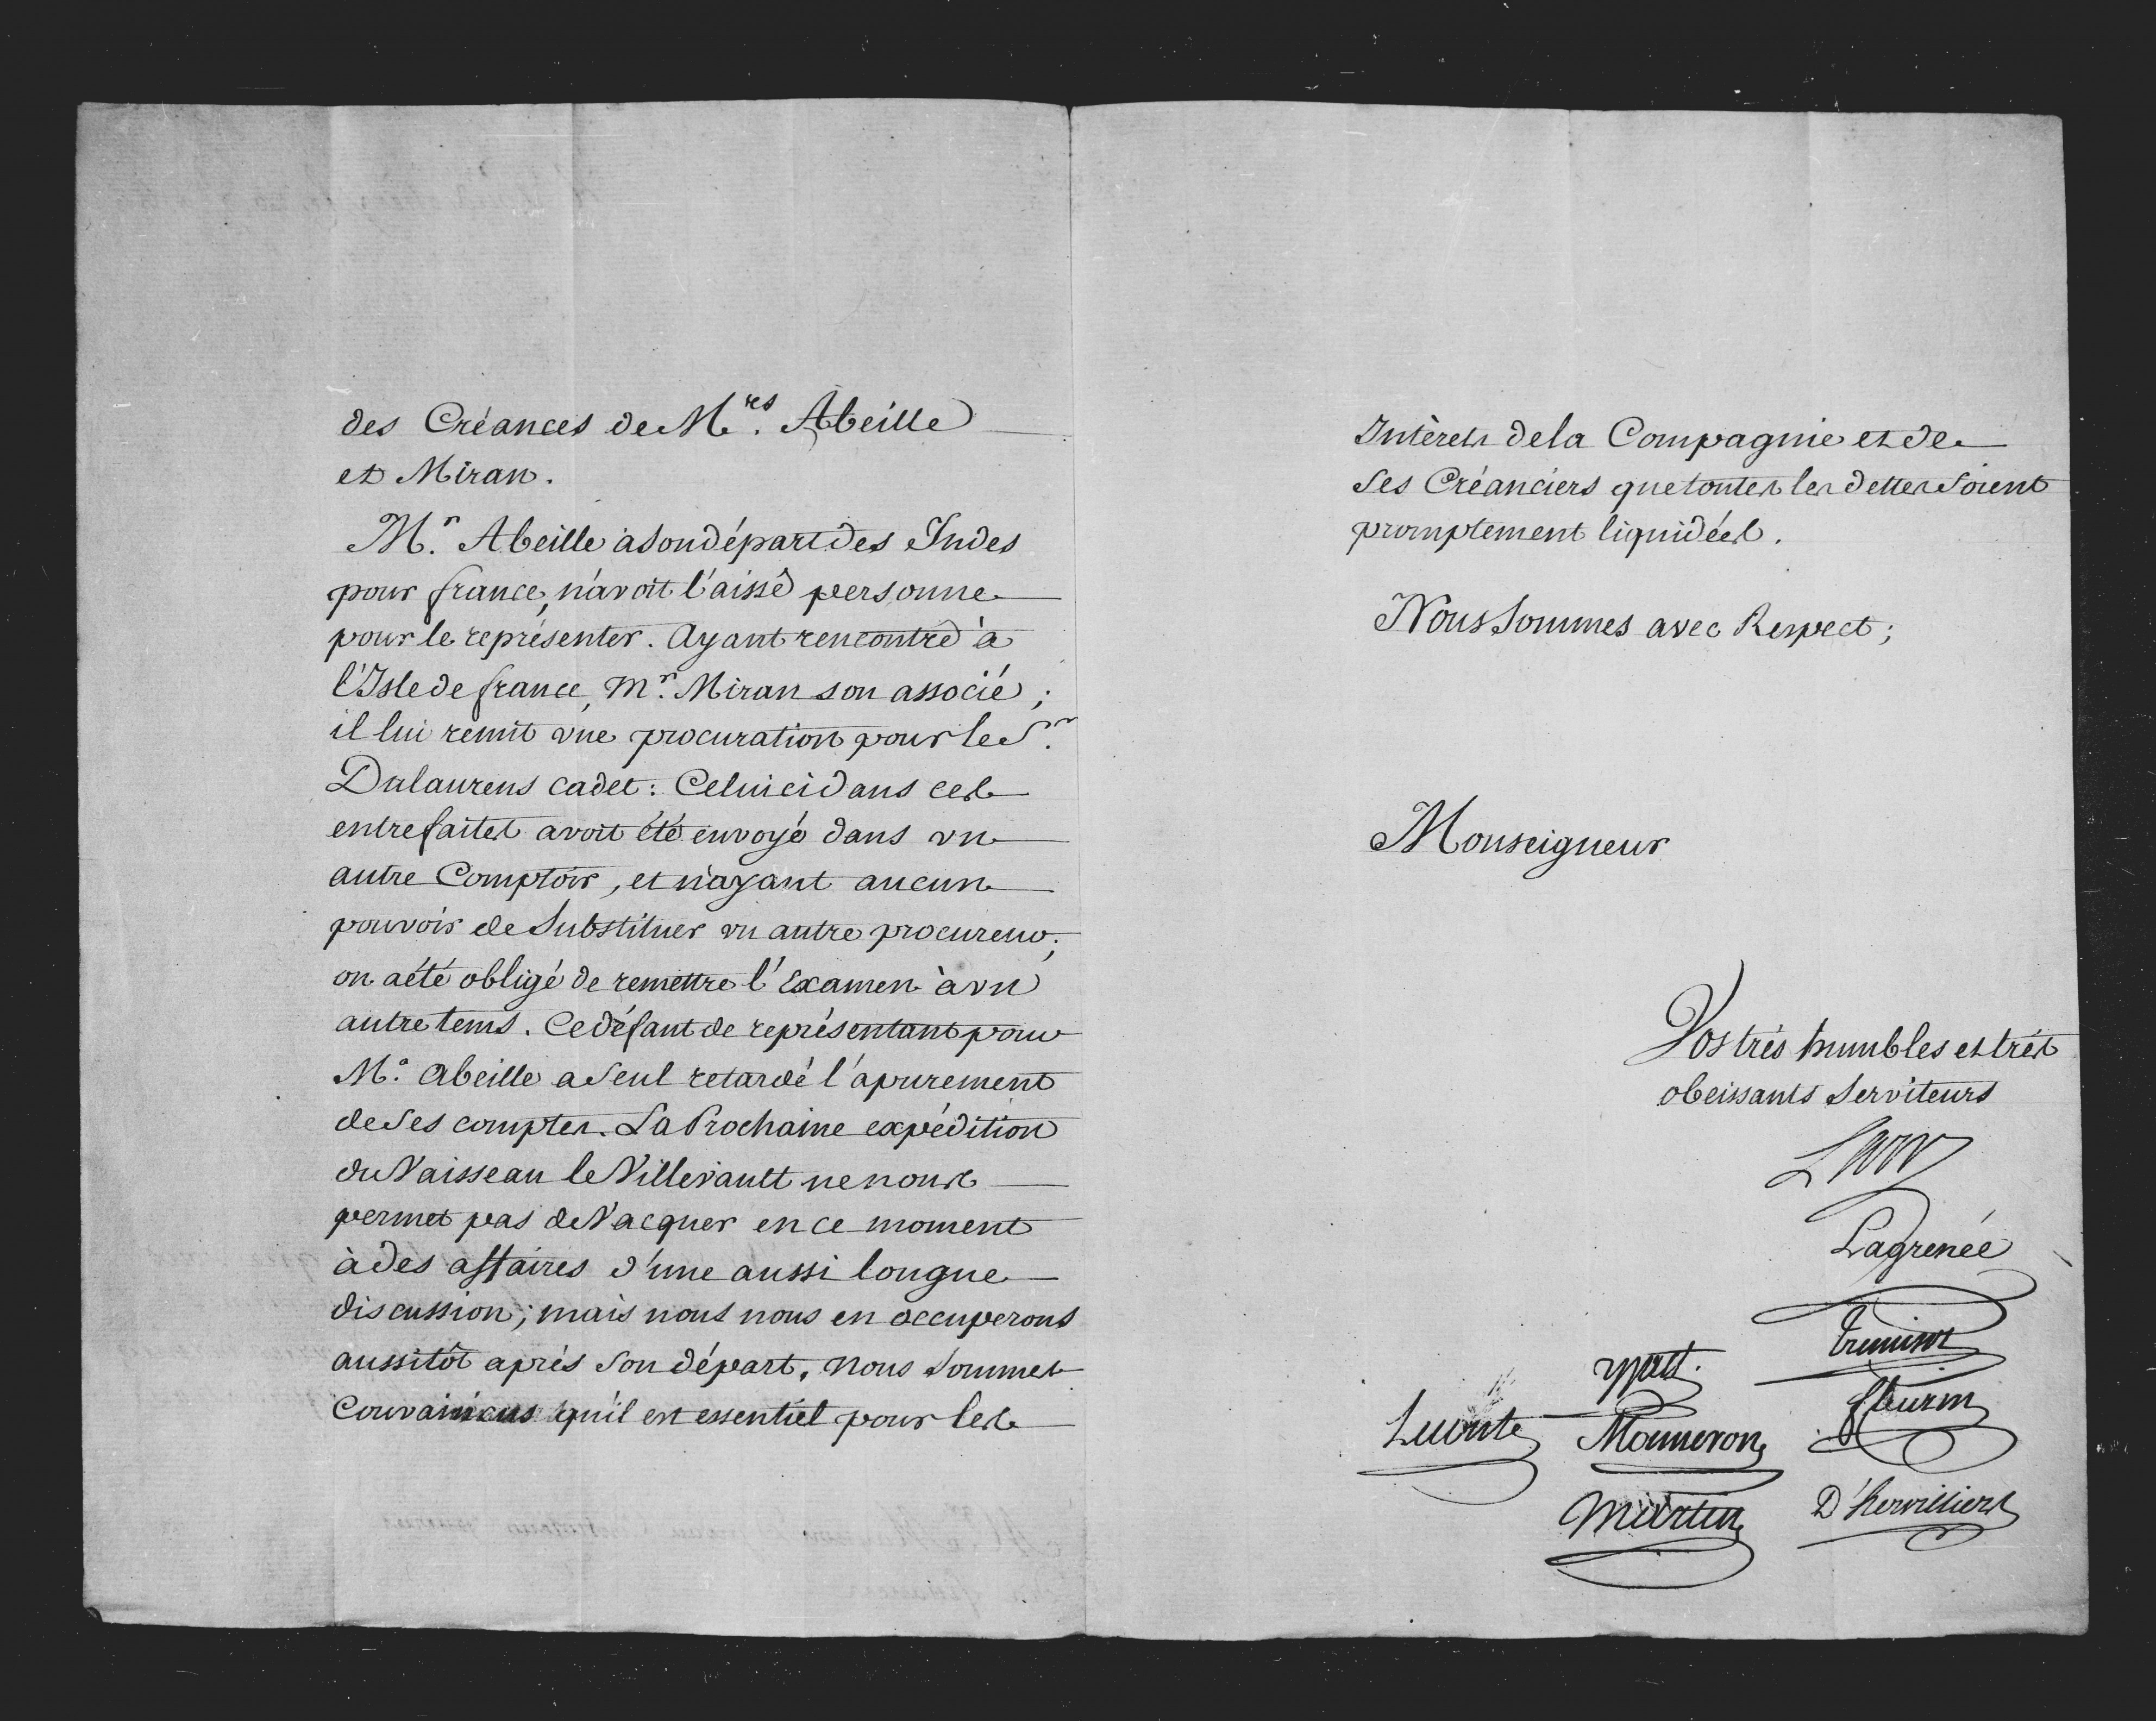 des Créances de M.res Abeille
et Miran.
M.r Abeille à son départ des Indes
pour france, n'avoit l'aissé personne
pour le représenter. Ayant rencontré à
l'Isle de france, M.r Miran son associé ;
il lui remit vne procuration pour le S.r
Dulaurens cadet : Celui ci dans ces
entrefaites avoit été envoyé dans vn
autre Comptoir, et n'ayant aucun
pouvoir de Substituer vn autre procureur ;
on a été obligé de remettre l'Examen à vn
autre tems. Ce défaut de représentant pour
M.r Abeille a Seul retardé l'apurement
de Ses comptes. La Prochaine expédition
du Vaisseau le Villevault ne nous
permet pas de Vacquer en ce moment
à des affaires d'une aussi longue
discussion ; mais nous nous en occuperons
aussitôt après Son départ. Nous Sommes
Convaincus qu'il est essentiel pour les
Intèrets de la Compagnie et de
Ses Créanciers que toutes les dettes Soient
promptement liquidées.
Nous Sommes avec Respect ;
Monseigneur
Vos très humbles et très
obeissants Serviteurs
Law
Lagrenée
Mouneron
Martin
D'hervilliers